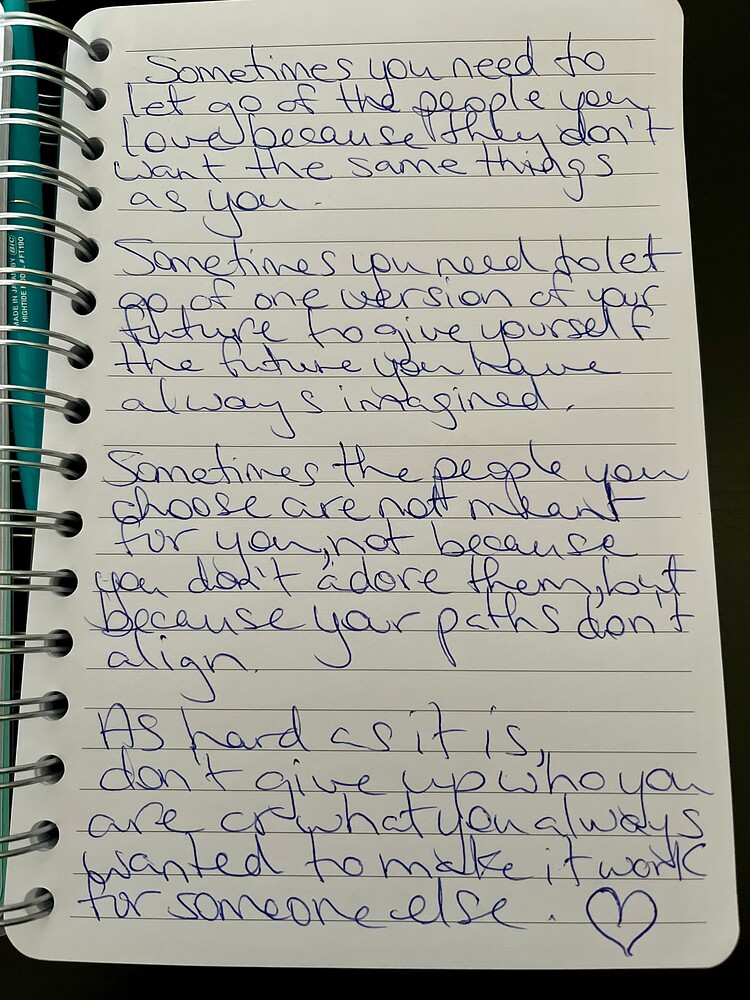 Sometimes you need to
let go of the people you
love because they don't
want the same things
as you.
Sometimes you need to let
go of one version of your
future to give yourself
the future you have
always imagined.
Sometimes the people you
choose are not meant
for you, not because
you don't adore them, but
because your paths don't
align.
As hard as it is,
don't give up who you
are or what you always
wanted to make it work
for someone else. ♡
MADE IN JAPAN BY BIC
HIGHTIDE MODEL #FT190